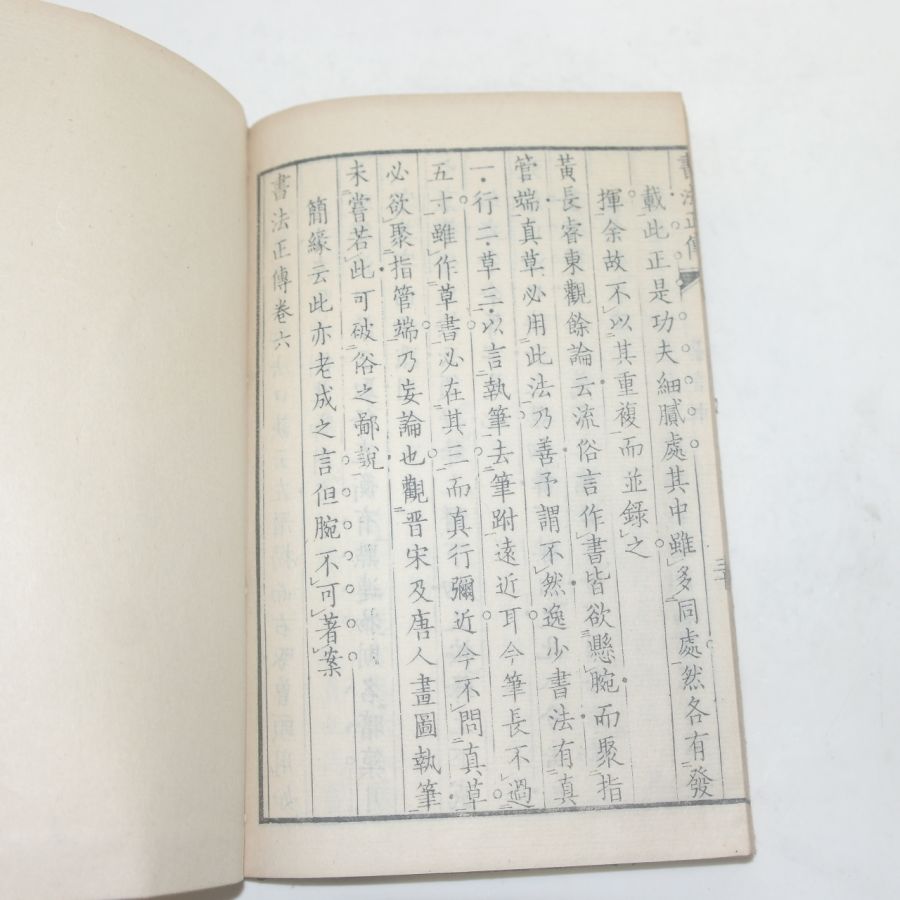 書法正傳
三十
載此正是功夫細膩處其中雖多同處然各有發
揮余故不以其重複而並錄之
黃長睿東觀餘論云流俗言作書皆欲懸腕而聚指
管端真草必用此法乃善予謂不然逸少書法有真
一行二草三以言執筆去筆跗遠近耳今筆長不過
五寸雖作草書必在其三而真行彌近今不問真草
必欲聚指管端乃妄論也觀晋宋及唐人畫圖執筆
未嘗若此可破俗之鄙說
簡緣云此亦老成之言但腕不可著案
書法正傳卷六